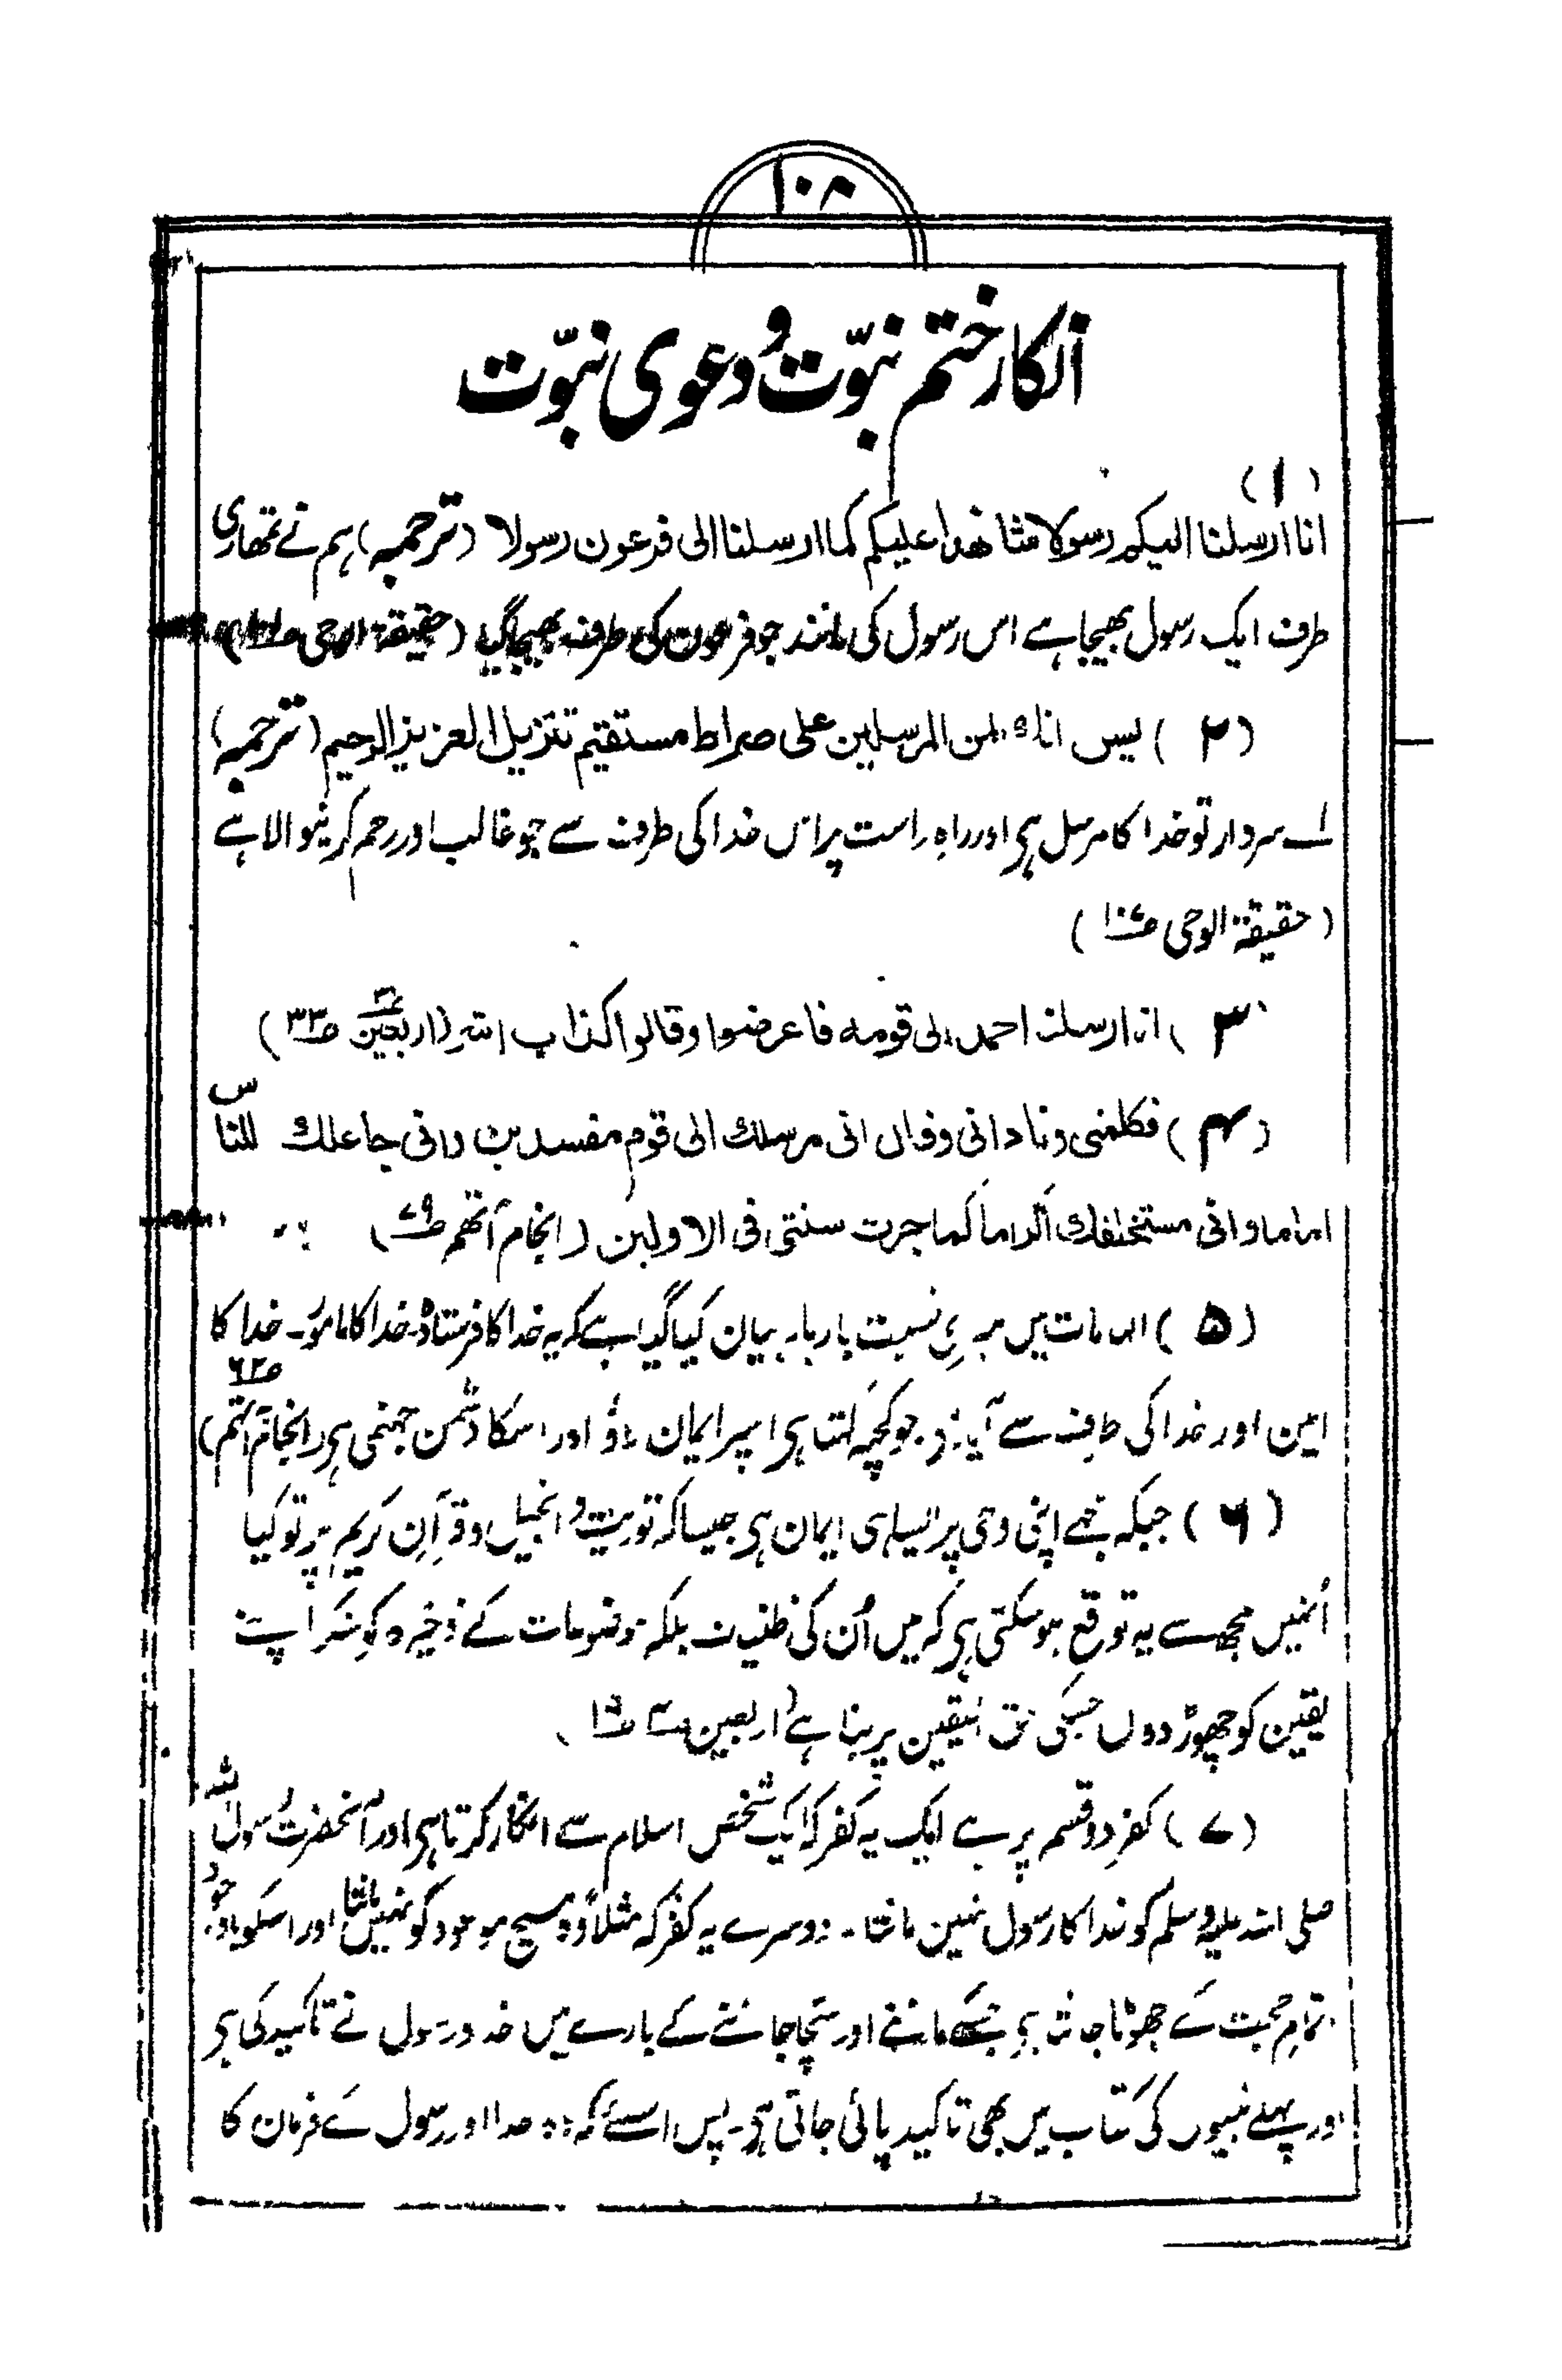 ۱۰۸
انکار ختم نبوّت و دعوی نبوّت
(۱)
انا ارسلنا الیکم رسولا شاهدا علیکم کما ارسلنا الی فرعون رسولا (ترجمہ) ہم نے تمھاری
طرف ایک رسول بھیجا ہے اس رسول کی مانند جو فرعون کی طرف بھیجا گیا (حقیقة الوحی
(۲) یس انک لمن المرسلین علی صراط مستقیم تنزیل العزیز الرحیم (ترجمہ)
اے سردار تو خدا کا مرسل ہی اور راہ راست پر اس خدا کی طرف سے جو غالب اور رحم کرنیوالا ہے
(حقیقة الوحی ص۱۰۷)
۳) انا ارسلنا احمد الی قومه فاعرضوا وقالوا کذاب اشر (اربعین ۳ ص۳۳)
(۴) فکلمنی ونادانی وقال انی مرسلک الی قوم مفسدین وانی جاعلک للناس
اماما وانی مستخلفک اکراما کما جرت سنتی فی الاولین (انجام آتھم ص۷۹)
(۵) الہامات میں میری نسبت بار بار بیان کیا گیا ہے کہ یہ خدا کا فرستادہ۔ خدا کا مامور۔ خدا کا
امین اور خدا کی طرف سے آیا ہے جو کچھ کہتا ہی اسپر ایمان لاؤ اور اسکا دشمن جہنمی ہی (انجام آتھم ص۶۲)
(۶) جبکہ مجھے اپنی وحی پر ایسا ہی ایمان ہی جیسا کہ توریت و انجیل و قرآن کریم پر تو کیا
اُنہیں مجھ سے یہ توقع ہو سکتی ہی کہ میں اُن کی ظنیات بلکہ موضوعات کے ذخیرہ کو سنکر اپنے
یقین کو چھوڑ دوں جسکی حق الیقین پر بنا ہے (اربعین ۴ ص۱۹)
(۷) کفر دو قسم پر ہے ایک یہ کفر کہ ایک شخص اسلام سے انکار کرتا ہی اور آنحضرت رسول اللہ
صلی اللہ علیہ وسلم کو خدا کا رسول نہین مانتا۔ دوسرے یہ کفر کہ مثلاً وہ مسیح موعود کو نہیں مانتا اور اسکو باوجود
تمام حجت کے جھوٹا جانتا ہی جسکے ماننے اور سچا جاننے کے بارے میں خدا و رسول نے تاکید کی ہی
اور پہلے نبیوں کی کتاب میں بھی تاکید پائی جاتی ہی۔ پس اسلئے کہ وہ خدا اور رسول کے فرمان کا